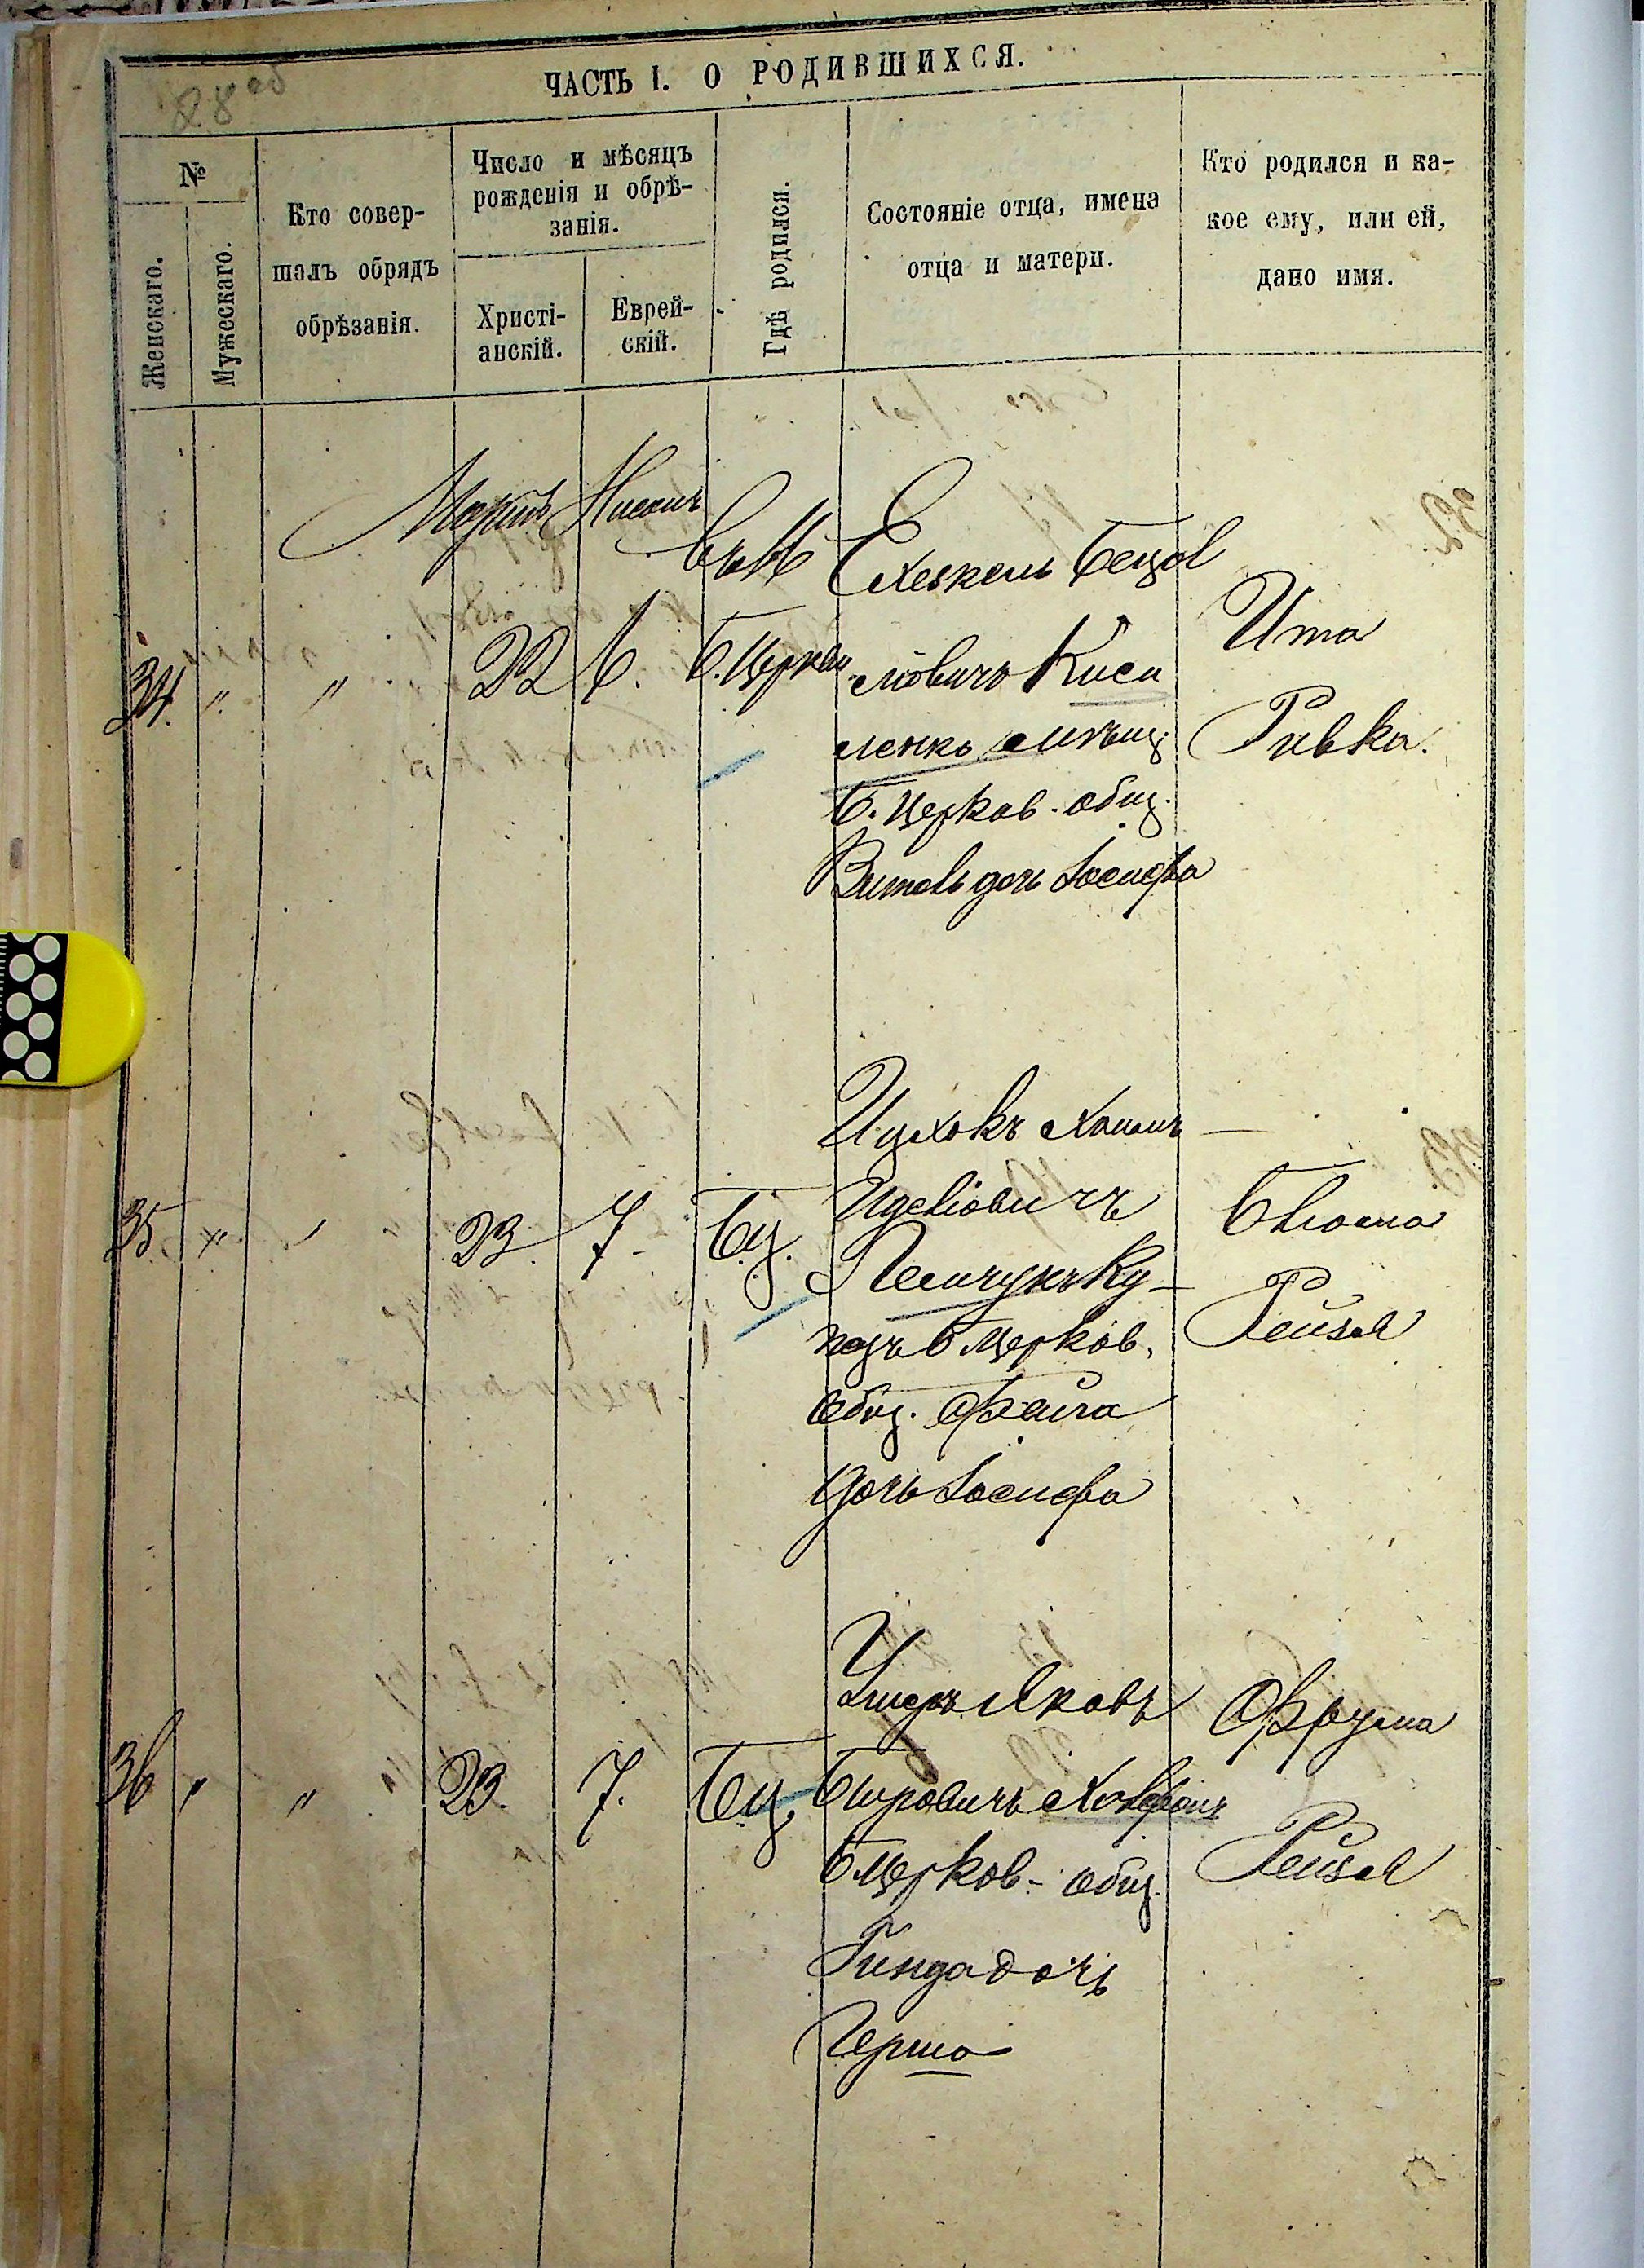 28 об
ЧАСТЬ I. О РОДИВШИХСЯ.
№
Женскаго.
Мужескаго.
Кто совер-
шалъ обрядъ
обрѣзанія.
Число и мѣсяцъ
рожденія и обрѣ-
занія.
Христі-
анскій.
Еврей-
скій.
Гдѣ родился.
Состояніе отца, имена
отца и матери.
Кто родился и ка-
кое ему, или ей,
дано имя.
Мартъ Нисонъ
34. " " 22 6. въ М Б. Церкви
Ехескель Бецал
іовичъ Киси
ленко
Б. Церков. общ.
Витель дочь Іосифа
Ита
Ривка.
35 " " 23. 7. Бц.
Ицхокъ Хаимъ
Иделіовичъ
Лемчукъ Ку-
пецъ Б Церков.
общ. Файга
дочь Іосифа
Блюма
Рейзя
36 " " 23. 7. Бц.
Яковъ
Беровичъ
БЦерков. общ.
Гинда дочь
Герша
Фрума
Рейзя